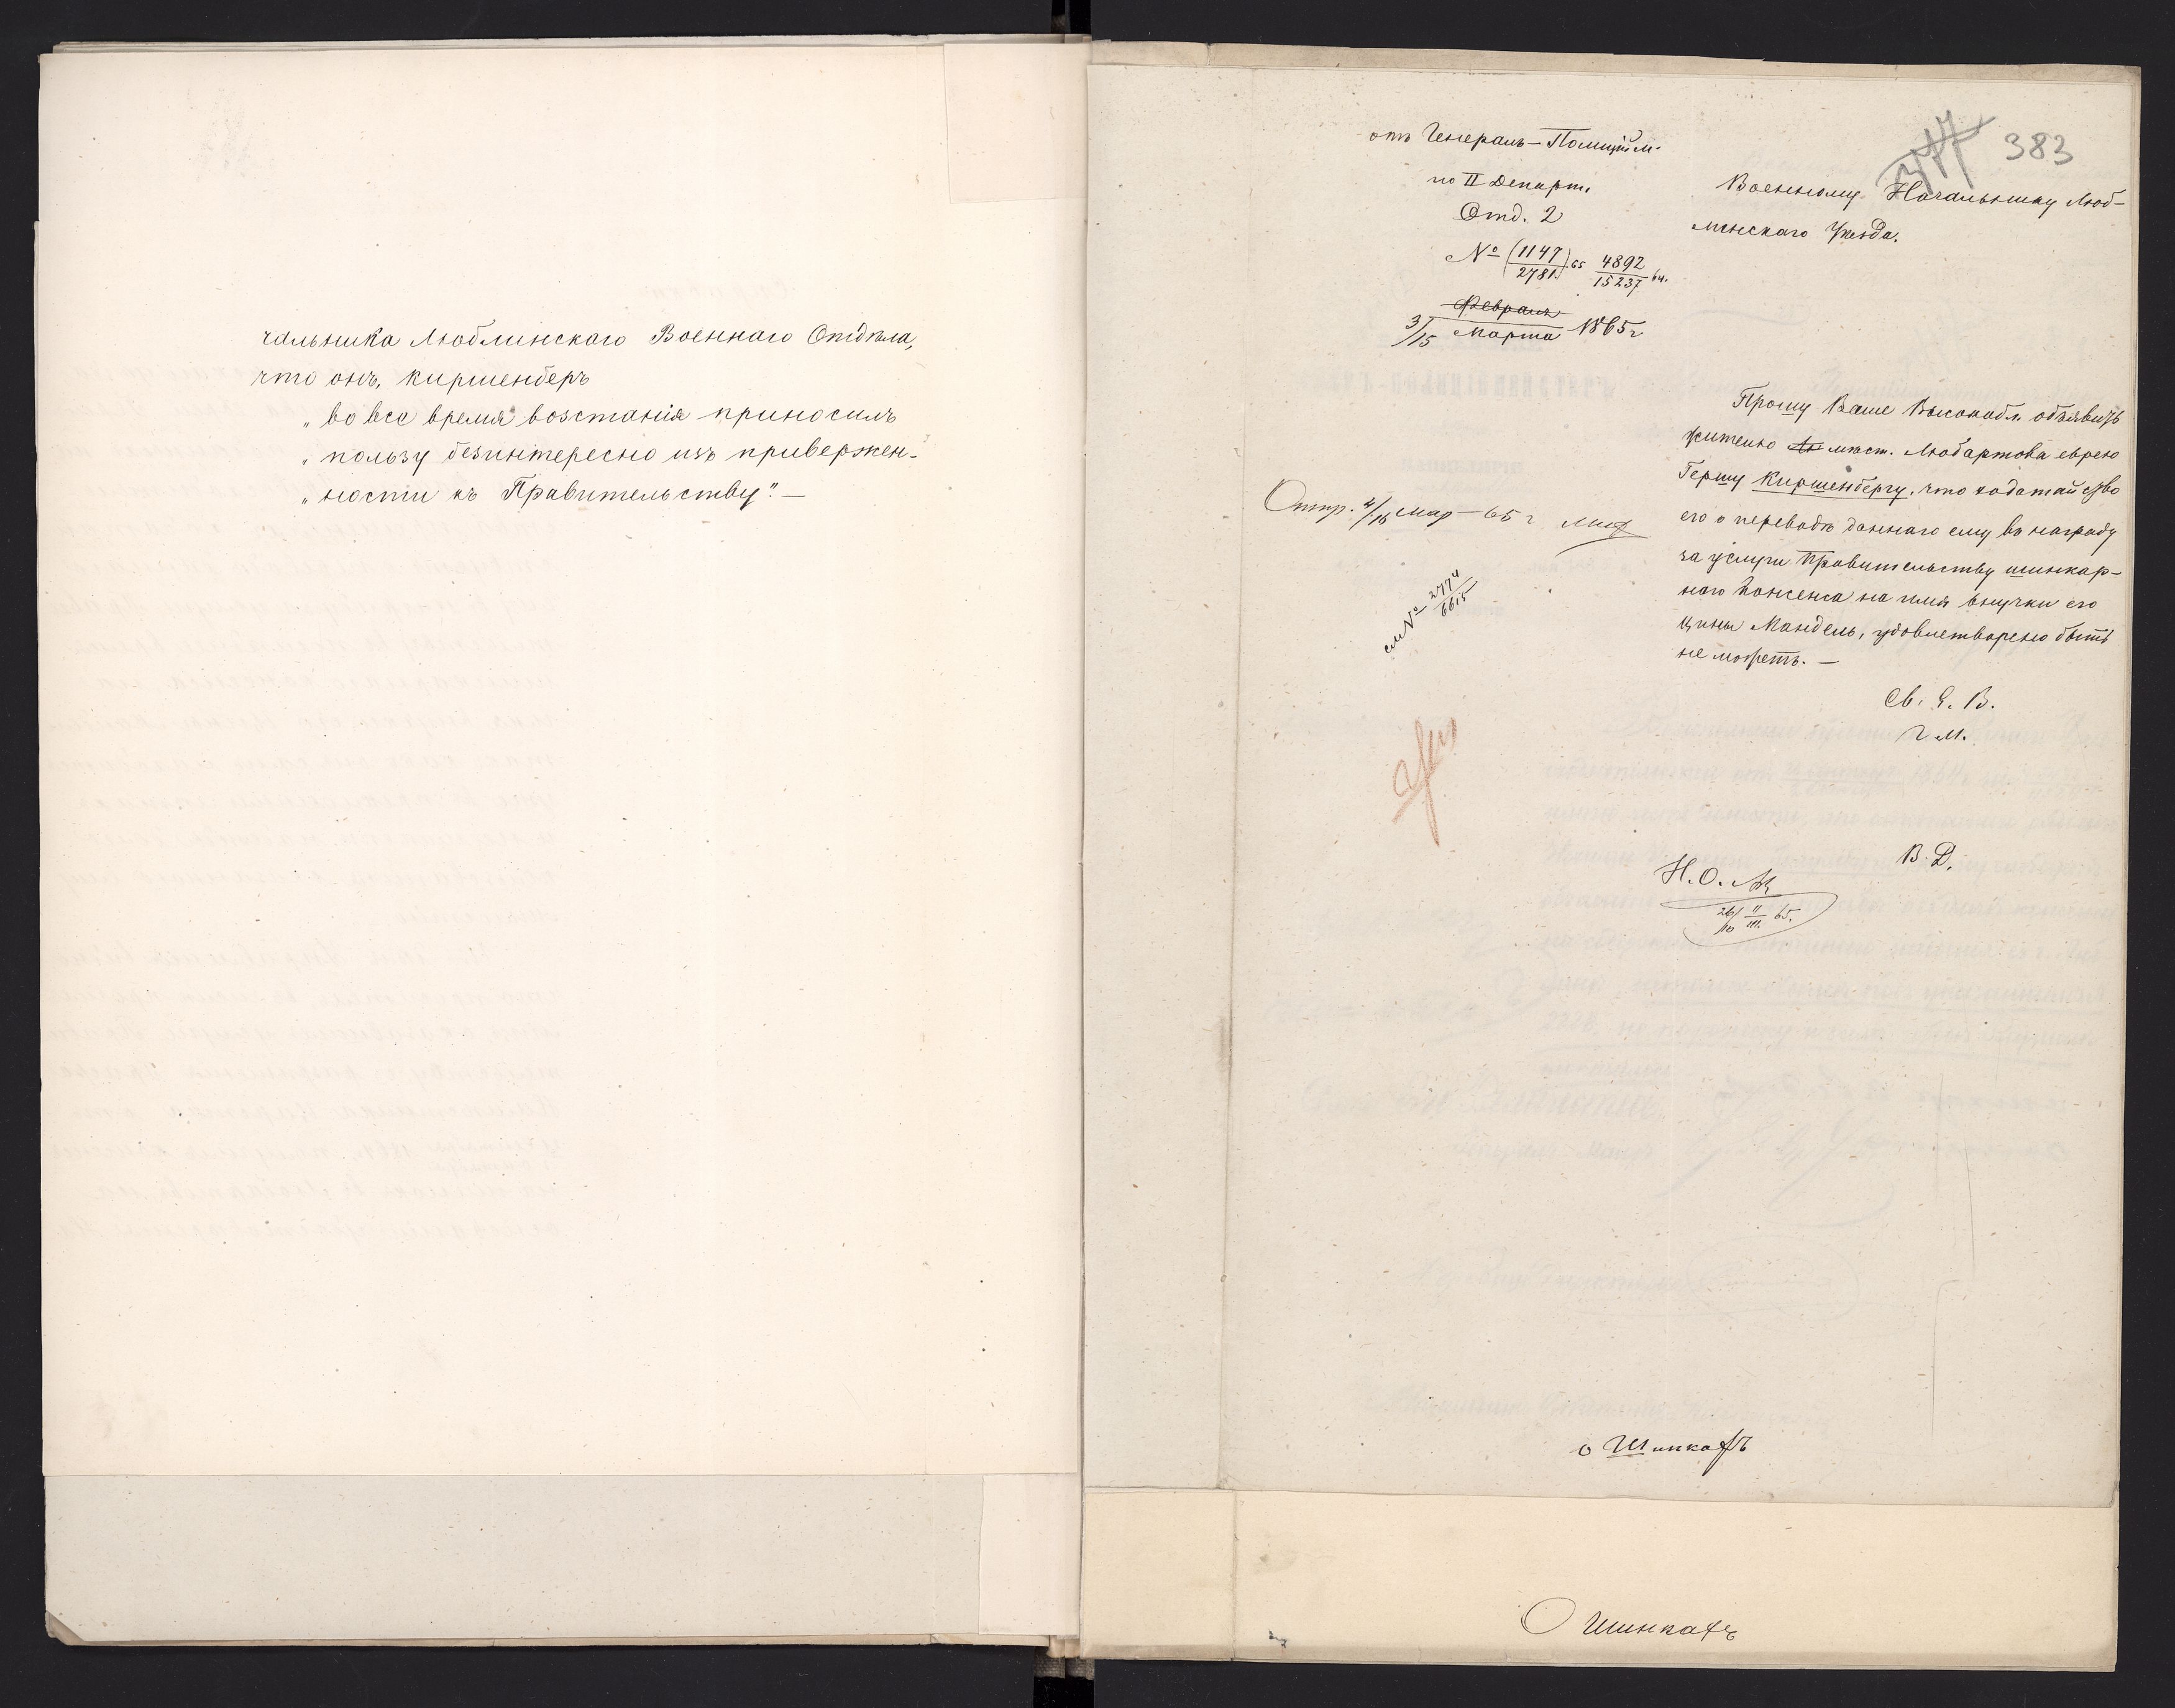 чальника Люблинскаго Военнаго Отдѣла,
что онъ, Киршенберъ
„во все время возстанія приносилъ
„пользу безинтересно изъ привержен-
„ности къ Правительству". —
383
отъ Генералъ-Полиційм.
по II Департ.
Отд. 2
№ (1147/2781) 65 4892/15237 64.
Февраля
3/15 Марта 1865 г
Военному Начальнику Люб-
линскаго Уѣзда.
Прошу Ваше Высокобл. объявить
жителю мѣст. Любартова еврею
Гершу Киршенбергу, что ходатайство
его о переводѣ даннаго ему въ награду
за услуги Правительству шинкар-
наго консенса на имя внучки его
Цины Мандель, удовлетворено быть
не можетъ. —
Отпр. 4/16 мар 65 г
см № 2774/6615
Св. Е. В.
Г. М.
В. Д.
Н. О.
26/10 II/III 65.
о Шинкахъ
О Шинкахъ